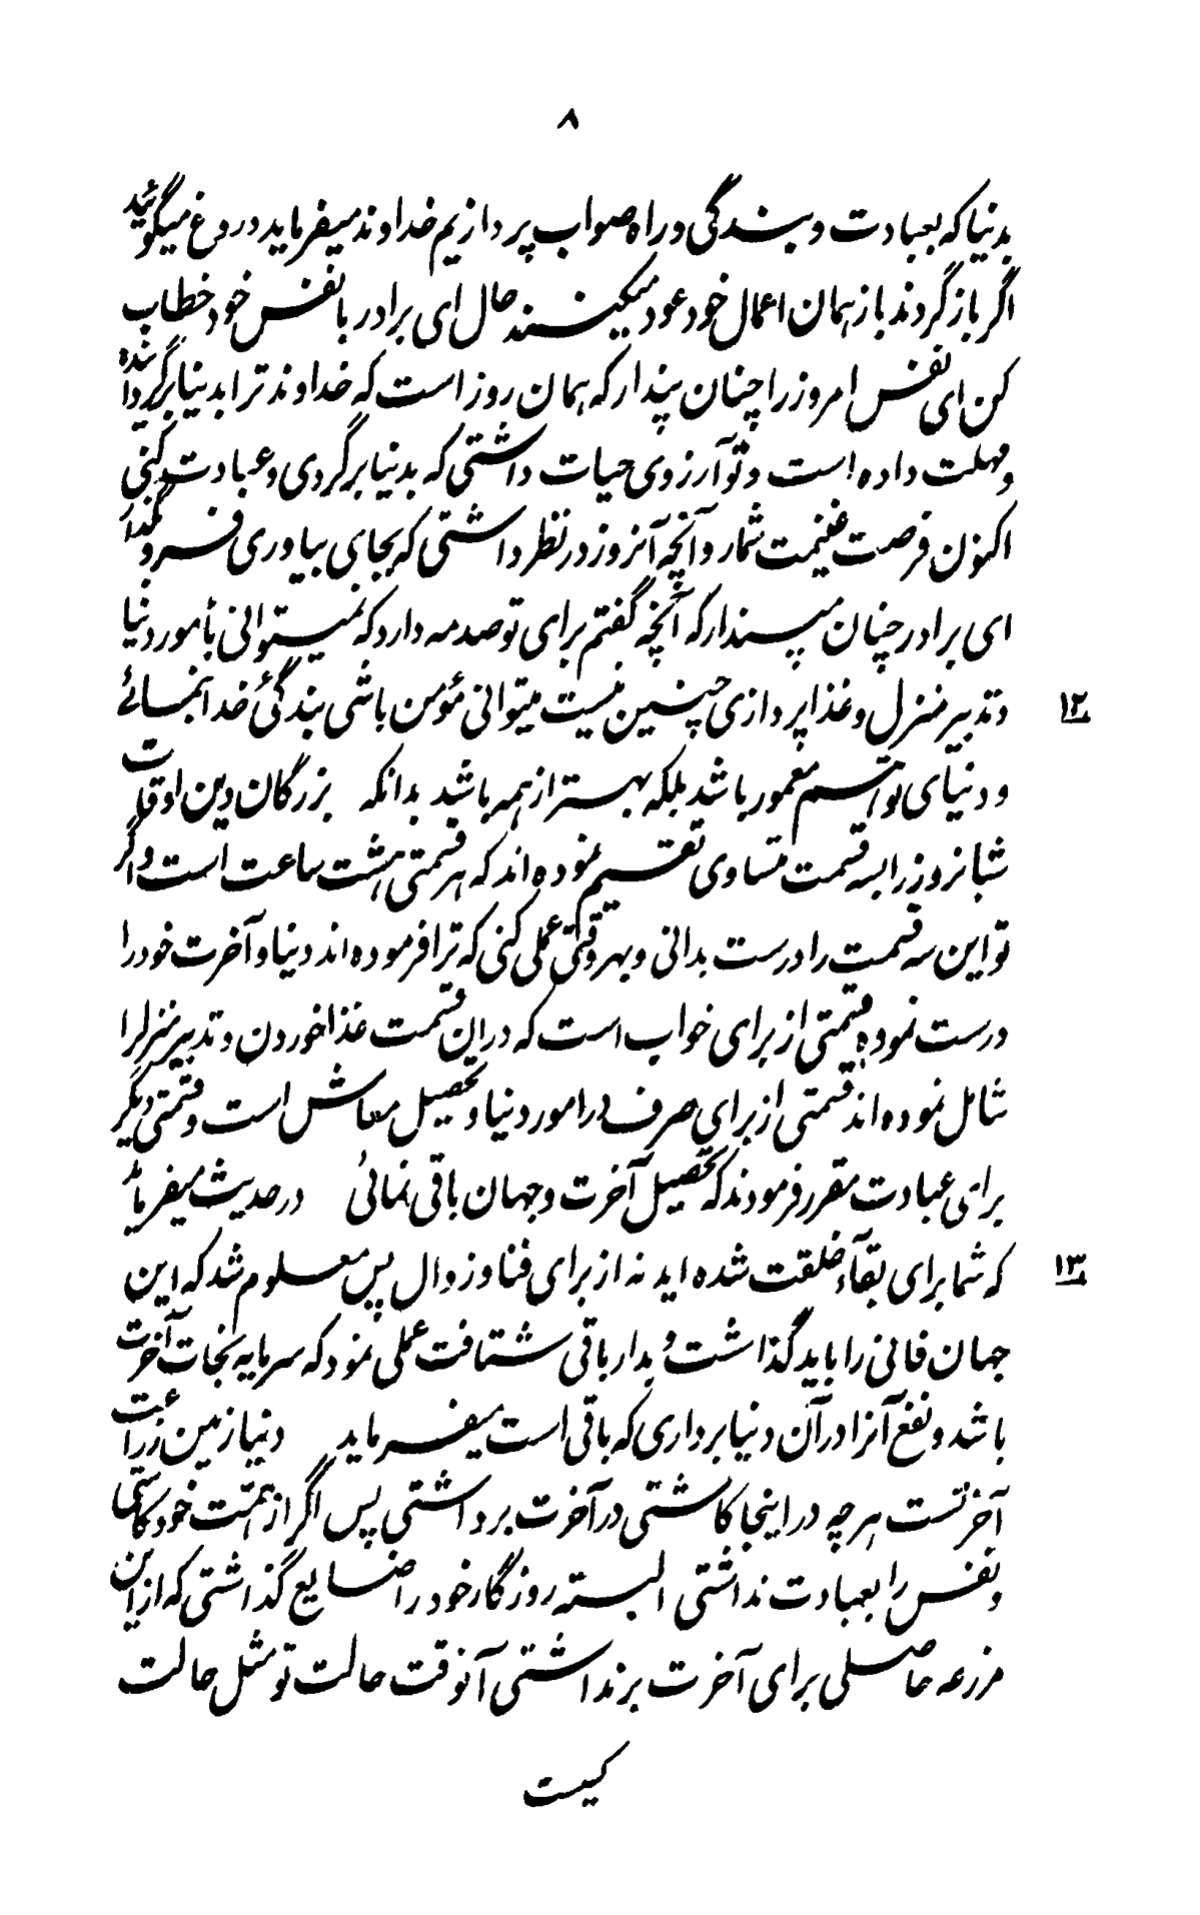 ۸
بدنیا که بعبادت و بندگی و راه صواب پردازیم خداوند میفرماید دروغ میگوئید
اگر بازگردند باز همان اعمال خود عود میکینند حال ای برادر با نفس خود خطاب
کن ای نفس امروز را چنان پندار که همان روز است که خداوند ترا بدنیا برگردانده
و مهلت داده است و تو آرزوی حیات داشتی که بدنیا برگردی و عبادت کنی
اکنون فرصت غنیمت شمار و آنچه آنروز در نظر داشتی که بجای بیاوری فرو مگذار
ای برادر چنان مپندار که آنچه گفتم برای تو صدمه دارد که نمیتوانی بأمور دنیا
و تدبیر منزل و غذا پردازی چنین نیست میتوانی مؤمن باشی بندگئ خدا نمائے ۱۲
و دنیای تو هم معمور باشد بلکه بهتر از همه باشد بدانکه بزرگان دین اوقات
شبانروز را بسه قسمت متساوی تقسیم نموده اند که هر قسمتی هشت ساعت است و اگر
تو این سه قسمت را درست بدانی و بهر وقتی عملی کنی که ترا فرموده اند دنیا و آخرت خود را
درست نموده قسمتی از برای خواب است که در این قسمت غذا خوردن و تدبیر منزل را
شامل نموده اند قسمتی از برای صرف در امور دنیا و تحصیل معاش است و قسمتی دیگر
برای عبادت مقرر فرمودند که تحصیل آخرت و جهان باقی نمائی در حدیث میفرماید
که شما برای بقآء خلقت شده اید نه از برای فنا و زوال پس معلوم شد که این ۱۳
جهان فانی را باید گذاشت و بدار باقی شتافت عملی نمود که سرمایه نجات آخرت
باشد و نفع آنرا در آن دنیا برداری که باقی است میفرماید دنیا زمین زراعت
آخرتست هر چه در اینجا کاشتی در آخرت برداشتی پس اگر از همّت خود کاستی
و نفس را بعبادت نداشتی البسته روزگار خود را ضایع گذاشتی که از این
مزرعه حاصلی برای آخرت برنداشتی آنوقت حالت تو مثل حالت
کیست